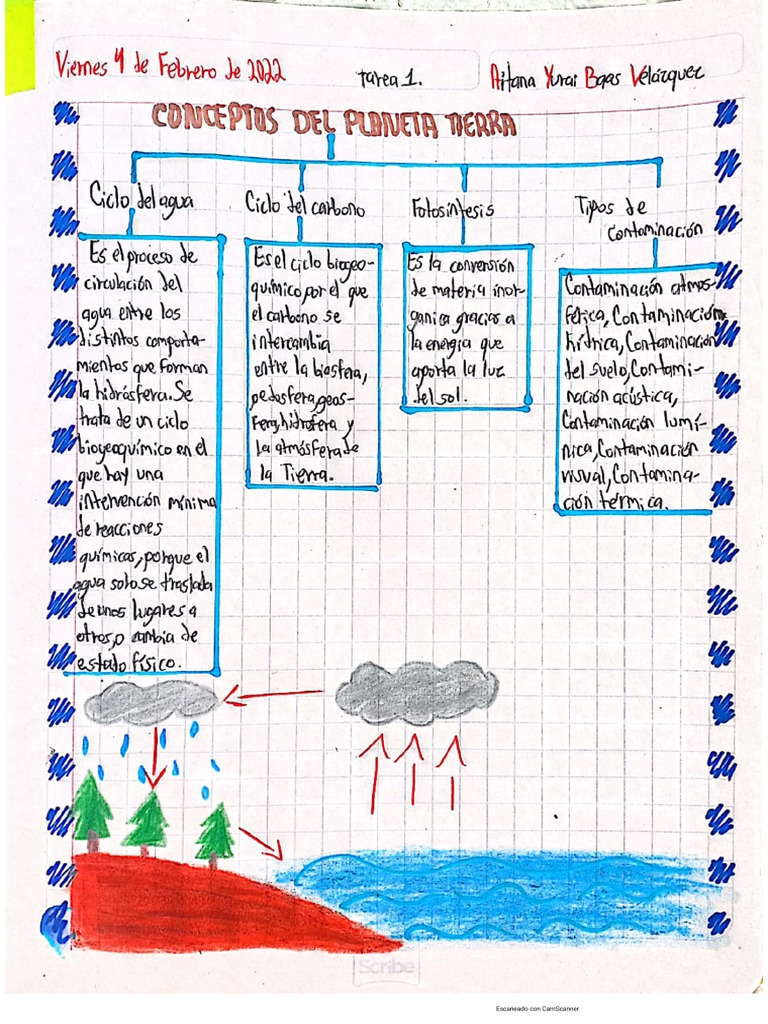 Viernes 4 de Febrero de 2022
tarea 1.
Aitana Yurai Bajas Velázquez
CONCEPTOS DEL PLANETA TIERRA
Ciclo del agua
Es el proceso de
circulación del
agua entre los
distintos comporta-
mientos que forman
la hidrósfera. Se
trata de un ciclo
biogeoquímico en el
que hay una
intervención mínima
de reacciones
químicas, porque el
agua solo se traslada
de unos lugares a
otros, o cambia de
estado físico.
Ciclo del carbono
Es el ciclo biogeo-
químico por el que
el carbono se
intercambia
entre la biosfera,
pedosfera, geos-
fera, hidrosfera y
la atmósfera de
la Tierra.
Fotosíntesis
Es la conversión
de materia inor-
ganica gracias a
la energia que
aporta la luz
del sol.
Tipos de
Contaminación
Contaminación atmos-
férica, Contaminación
hídrica, Contaminación
del suelo, Contami-
nación acústica,
Contaminación lumí-
nica, Contaminación
visual, Contamina-
ción térmica.
Scribe
Escaneado con CamScanner